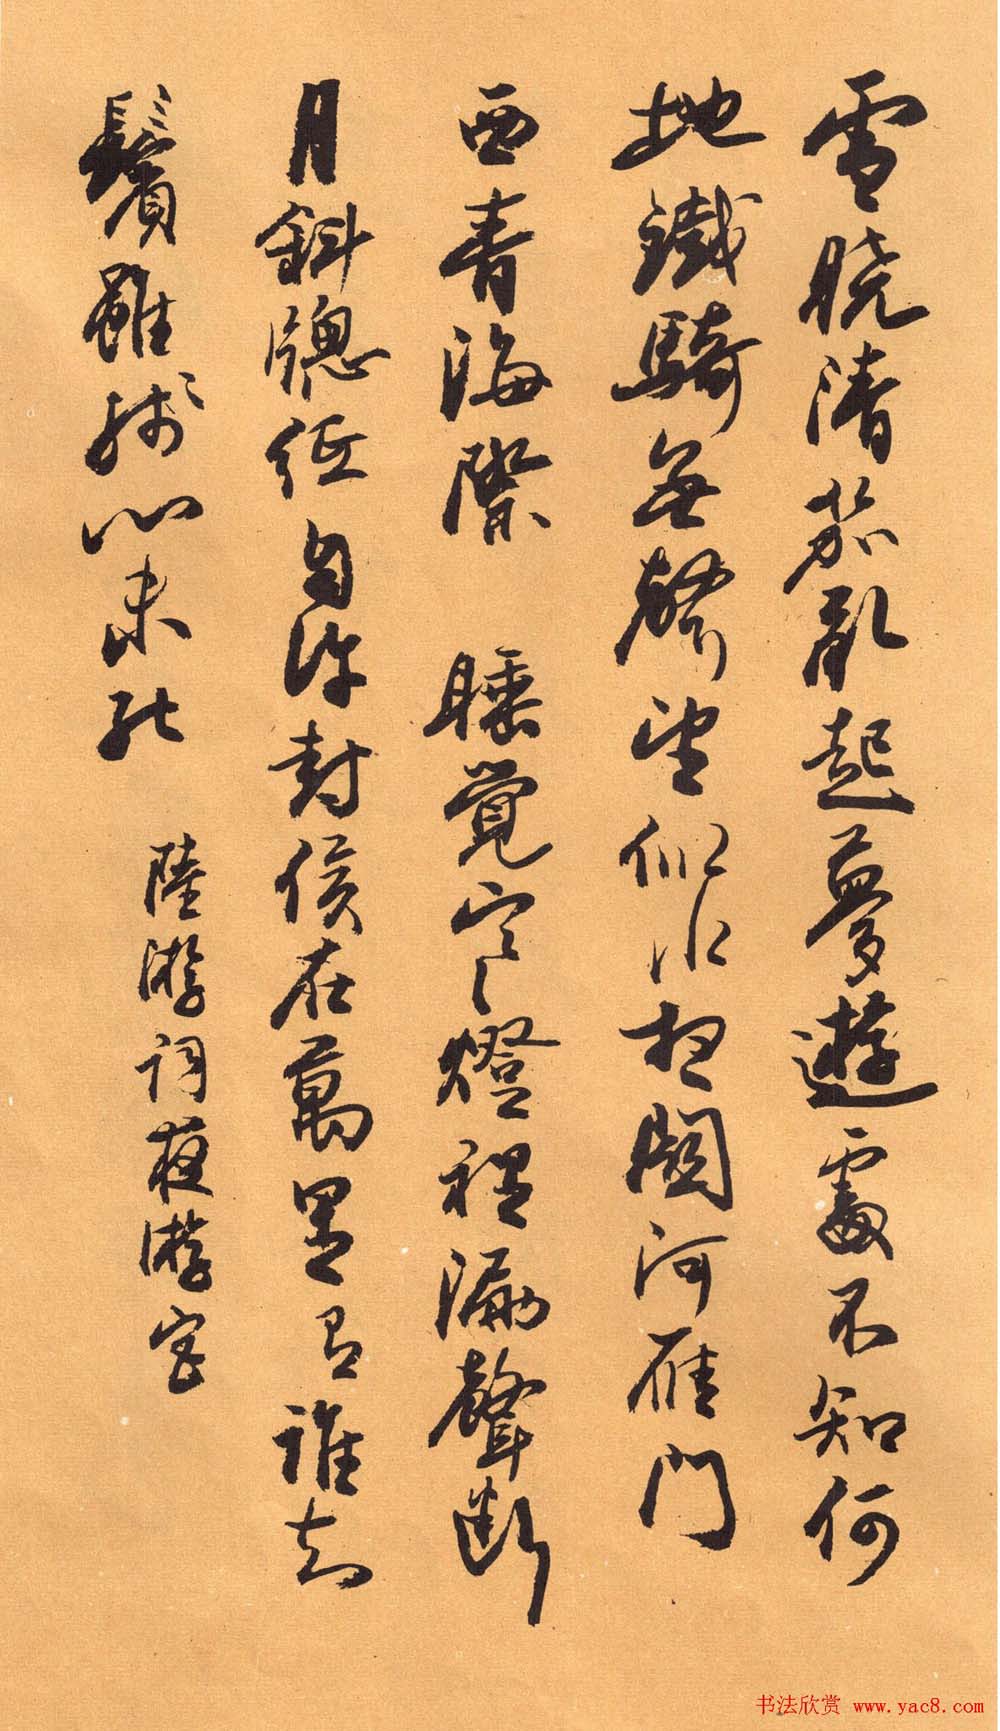 雪曉清笳亂起夢遊處不知何
地鐵騎無聲望似水想關河雁門
西青海際 睡覺寒燈裡漏聲斷
月斜窗紙自許封侯在萬里有誰知
鬢雖殘心未死 陸游詞夜游宮
书法欣赏 www.yac8.com